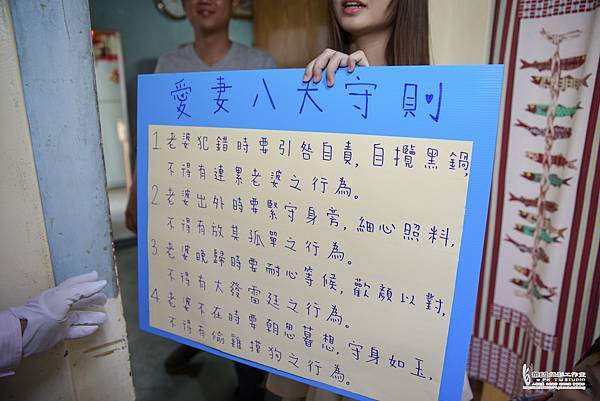 愛妻八大守則
1 老婆犯錯時要引咎自責，自攬黑鍋，
不得有連累老婆之行為。
2 老婆出外時要緊守身旁，細心照料，
不得有放某孤單之行為。
3 老婆晚歸時要耐心等候，歡顏以對，
不得有大發雷廷之行為。
4 老婆不在時要朝思暮想，守身如玉，
不得有偷雞摸狗之行為。